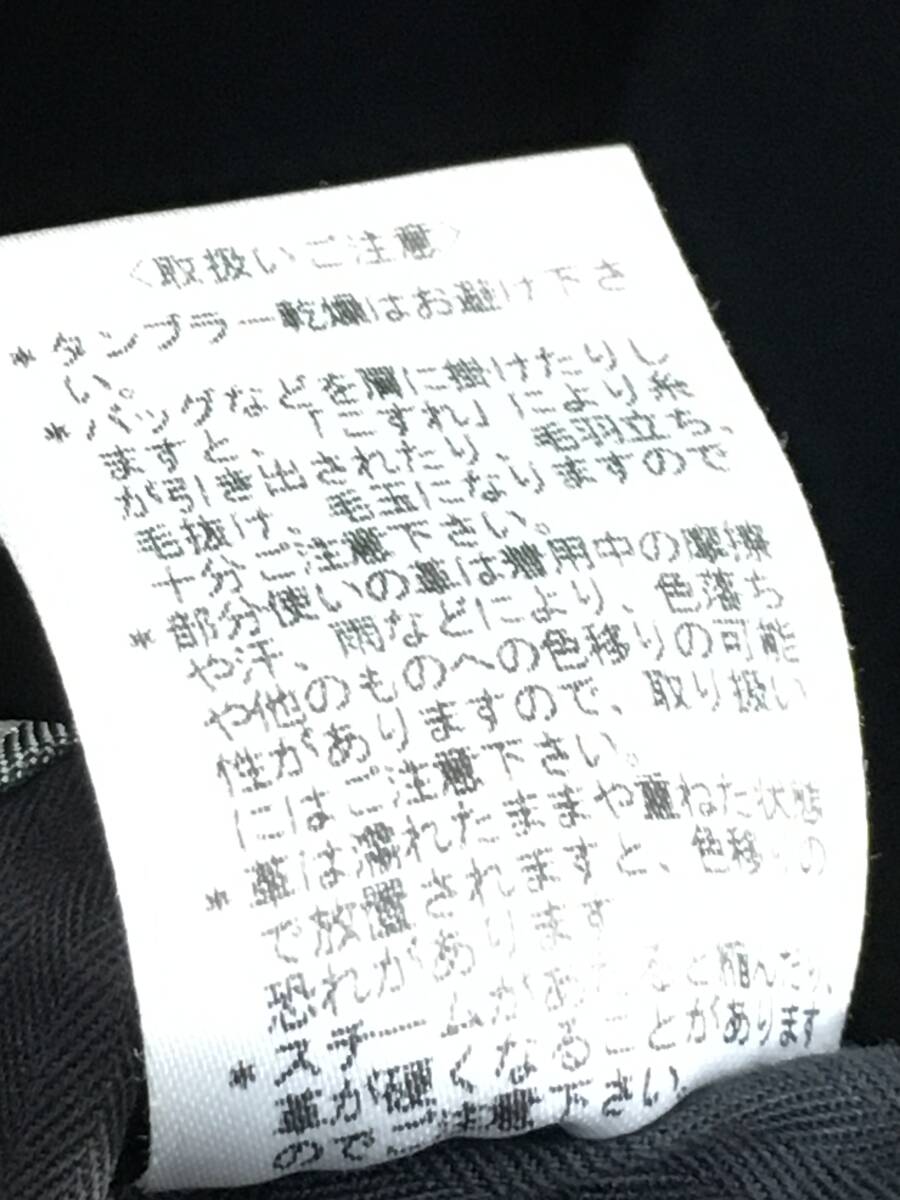 〈取扱いご注意〉
*タンブラー乾燥はお避け下さ
い。
*バッグなどを肩に掛けたりし
ますと、「こすれ」により糸
が引き出されたり、毛羽立ち、
毛抜け、毛玉になりますので
十分ご注意下さい。
*部分使いの革は着用中の摩擦
や汗、雨などにより、色落ち
や他のものへの色移りの可能
性がありますので、取り扱い
にはご注意下さい。
*革は濡れたままや重ねた状態
で放置されますと、色移りの
恐れがあります
*スチームがあたると縮んだり、
革が硬くなることがあります
のでご注意下さい。